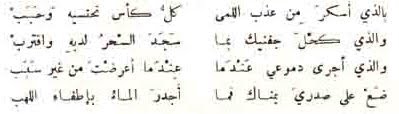 بالذي أسكرَ من عذب اللمى كلُّ كأس تحتسيه وحَبَبْ
والذي كحّلَ جفنيك بما سجَدَ السحرُ لديه واقتربْ
والذي أجرى دموعي عندَما عندما أعرضتَ من غير سبَبْ
ضعْ على صدريَ يمناك فما أجدرَ الماءَ بإطفاء اللهبْ